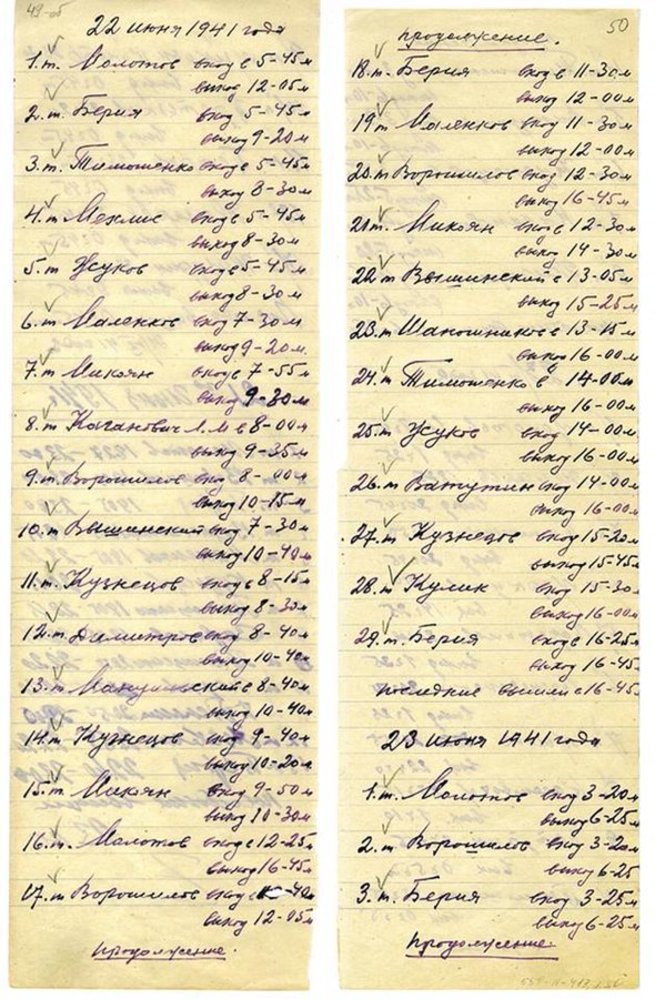 49-об
22 июня 1941 года
1. т. Молотов вход в 5-45м
выход 12-05м
2. т. Берия вход 5-45м
выход 9-20м
3. т. Тимошенко вход в 5-45м
выход 8-30м
4. т. Мехлис вход в 5-45м
выход 8-30м
5. т. Жуков вход в 5-45м
выход 8-30м
6. т. Маленков вход 7-30м
выход 9-20м.
7. т. Микоян вход в 7-55м
выход 9-30м
8. т. Каганович Л.М. в 8-00м
выход 9-35м
9. т. Ворошилов вход 8-00м
выход 10-15м
10. т. Вышинский вход 7-30м
выход 10-40м
11. т. Кузнецов вход в 8-15м
выход 8-30м
12. т. Димитров вход 8-40м
выход 10-40м
13. т. Мануильский в 8-40м
выход 10-40м
14. т. Кузнецов вход 9-40м
выход 10-20м
15. т. Микоян вход 9-50м
выход 10-30м
16. т. Молотов вход в 12-25м
выход 16-45м
17. т Ворошилов вход в -40м
выход 12-05м
продолжение.
50
продолжение.
18. т. Берия вход в 11-30м
выход 12-00м
19 т Маленков вход 11-30м
выход 12-00м
20. т Ворошилов вход 12-30м
выход 16-45м
21. т. Микоян вход в 12-30м
выход 14-30м
22. т Вышинский в 13-05м
выход 15-25м
23. т Шапошников в 13-15м
выход 16-00м
24. т. Тимошенко в 14-00м
выход 16-00м
25. т Жуков вход 14-00м
выход 16-00м
26. т. Ватутин вход 14-00м
выход 16-00м
27. т. Кузнецов вход 15-20м
выход 15-45м
28. т. Кулик вход 15-30м
выход 16-00м
29. т. Берия вход в 16-25м
выход 16-45м
последние вышли в 16-45м
23 июня 1941 года
1. т. Молотов вход 3-20м
выход 6-25м
2. т Ворошилов вход 3-20м
выход 6-25
3. т. Берия вход 3-25м
выход 6-25м
продолжение.